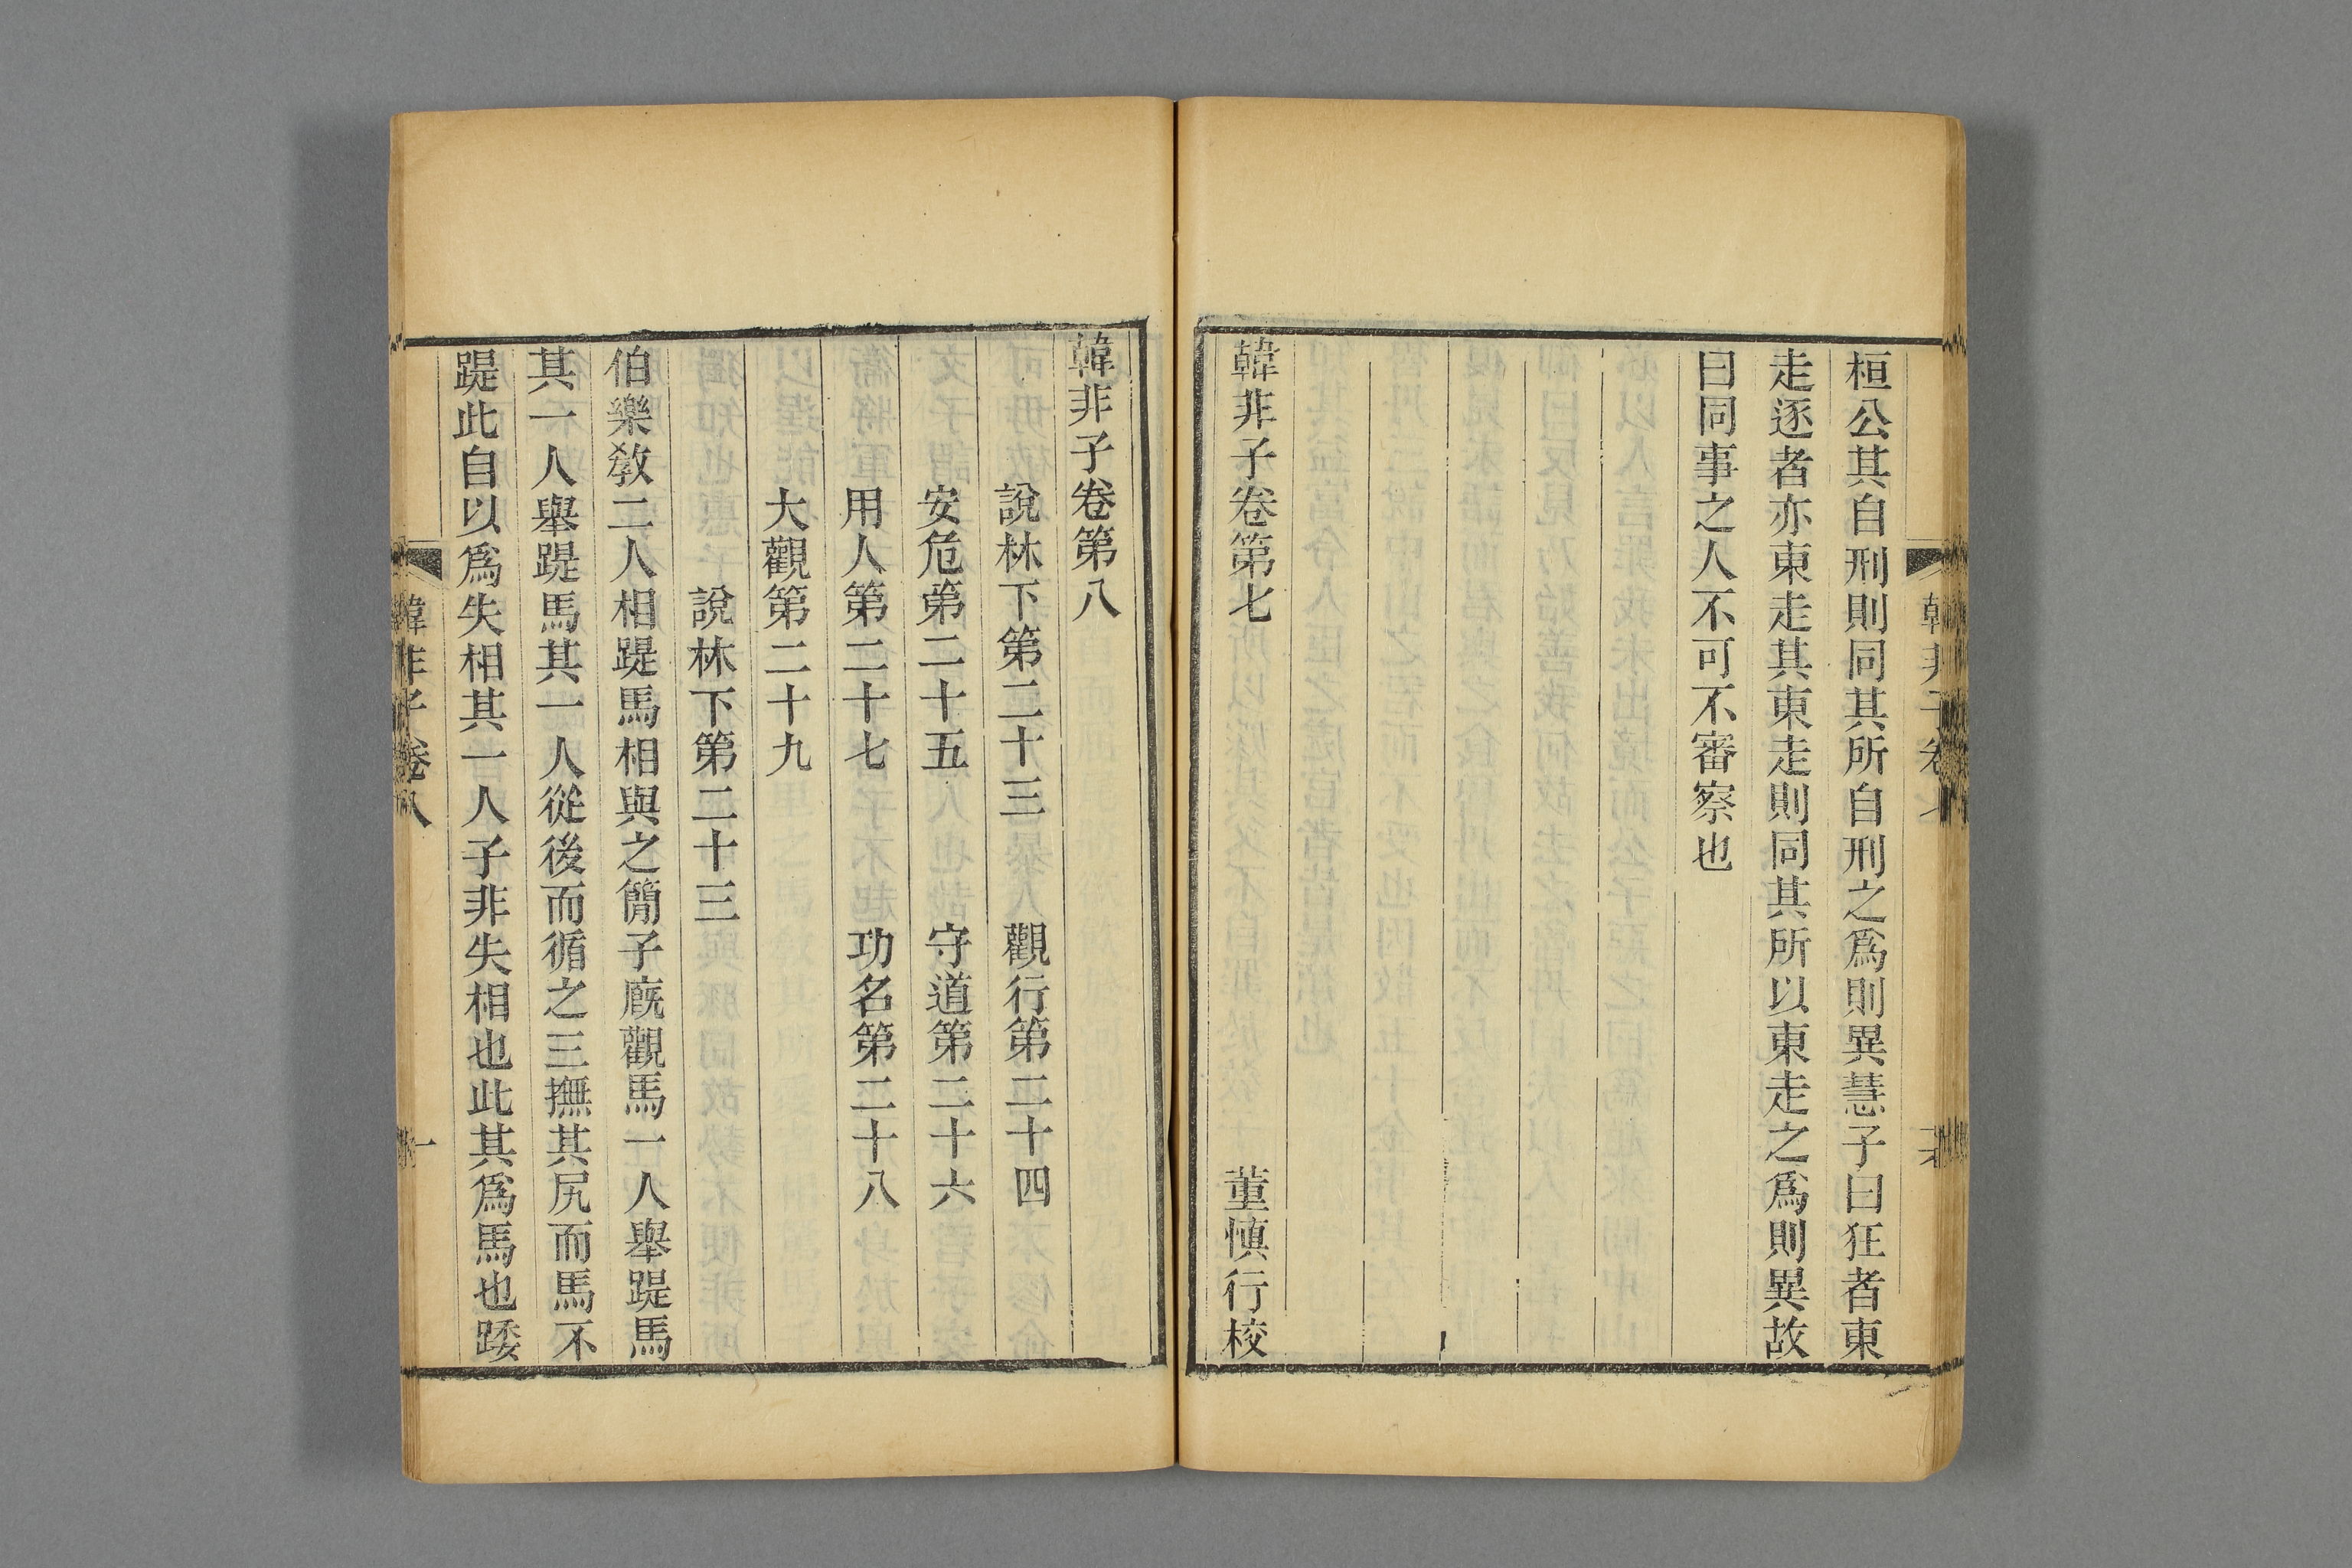 桓公其自刑則同其所自刑之爲則異慧子曰狂者東
走逐者亦東走其東走則同其所以東走之爲則異故
曰同事之人不可不審察也
韓非子卷第七 董愼行校
韓非子卷第八
說林下第二十三 觀行第二十四
安危第二十五 守道第二十六
用人第二十七 功名第二十八
大觀第二十九
說林下第二十三
伯樂敎二人相踶馬相與之簡子廐觀馬一人舉踶馬
其一人舉踶馬其一人從後而循之三撫其尻而馬不
踶此自以爲失相其一人子非失相也此其爲馬也踒
韓非子卷八 一